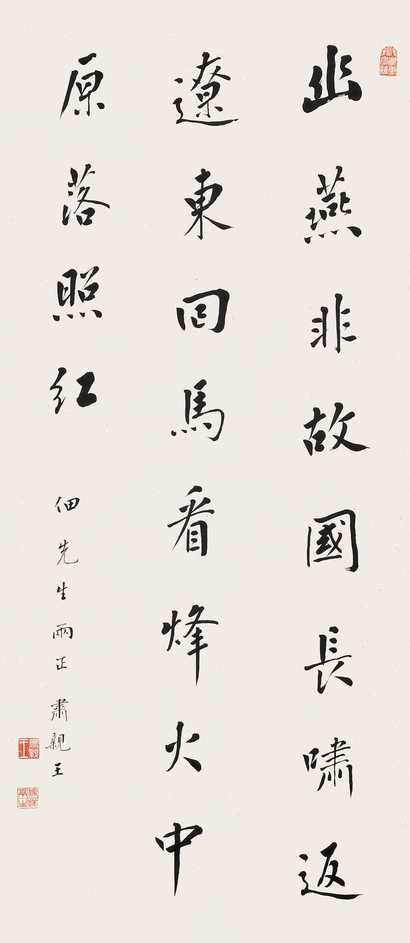 幽燕非故國長嘯返
遼東囘馬看烽火中
原落照紅
佃先生兩正 肅親王